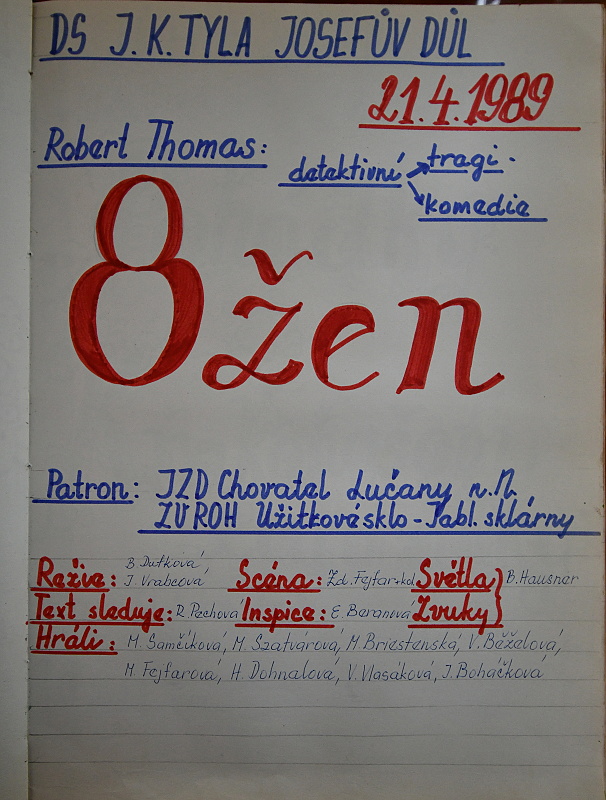 DS J. K. TYLA JOSEFŮV DŮL
21. 4. 1989
Robert Thomas:
detektivní tragi-
komedie
8 žen
Patron: JZD Chovatel Lučany n. N.
ZV ROH Užitkové sklo - Jabl. sklárny
Režie: B. Dutková, J. Vrabcová Scéna: Zd. Fejfar+kol. Světla } B. Hausner
Text sleduje: R. Pechová Inspice: E. Beranová Zvuky
Hráli: M. Samčíková, M. Szatvárová, M. Briestenská, V. Běželová,
M. Fejfarová, H. Dohnalová, V. Vlasáková, J. Boháčková